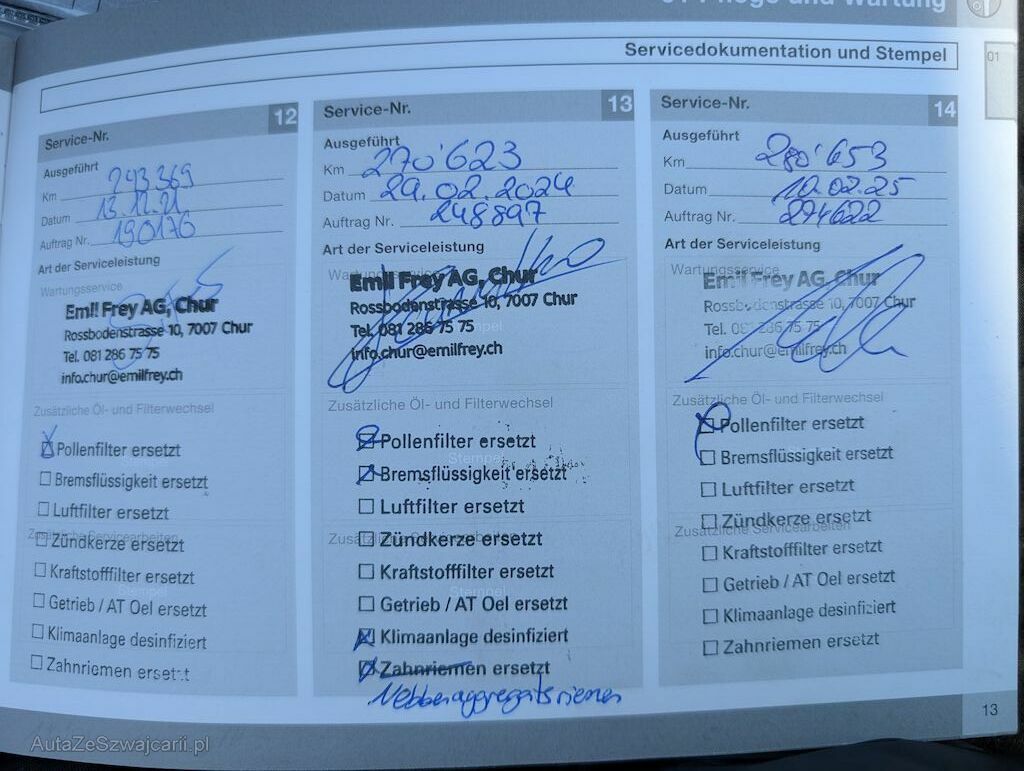 01 Pflege und Wartung
Servicedokumentation und Stempel
01
Service-Nr. 12
Ausgeführt
Km 243 369
Datum 13.12.21
Auftrag Nr. 190176
Art der Serviceleistung
Wartungsservice
Emil Frey AG, Chur
Rossbodenstrasse 10, 7007 Chur
Tel. 081 286 75 75
info.chur@emilfrey.ch
Zusätzliche Öl- und Filterwechsel
Pollenfilter ersetzt
Stempel
Bremsflüssigkeit ersetzt
Luftfilter ersetzt
Zusätzliche Servicearbeiten
Zündkerze ersetzt
Kraftstofffilter ersetzt
Stempel
Getrieb / AT Oel ersetzt
Klimaanlage desinfiziert
Zahnriemen ersetzt
Service-Nr. 13
Ausgeführt
Km 270'623
Datum 29.02.2024
Auftrag Nr. 248897
Art der Serviceleistung
Wartungsservice
Emil Frey AG, Chur
Rossbodenstrasse 10, 7007 Chur
Tel. 081 286 75 75
Stempel
info.chur@emilfrey.ch
Zusätzliche Öl- und Filterwechsel
Pollenfilter ersetzt
Stempel
Bremsflüssigkeit ersetzt
Luftfilter ersetzt
Zusätzliche Servicearbeiten
Zündkerze ersetzt
Kraftstofffilter ersetzt
Stempel
Getrieb / AT Oel ersetzt
Klimaanlage desinfiziert
Zahnriemen ersetzt
Nebbenaggregatsriemen
Service-Nr. 14
Ausgeführt
Km 280'653
Datum 10.02.25
Auftrag Nr. 274622
Art der Serviceleistung
Wartungsservice
Emil Frey AG, Chur
Rossbodenstrasse 10, 7007 Chur
Tel. 081 286 75 75
info.chur@emilfrey.ch
Zusätzliche Öl- und Filterwechsel
Pollenfilter ersetzt
Bremsflüssigkeit ersetzt
Luftfilter ersetzt
Zündkerze ersetzt
Zusätzliche Servicearbeiten
Kraftstofffilter ersetzt
Getrieb / AT Oel ersetzt
Klimaanlage desinfiziert
Zahnriemen ersetzt
13
AutaZeSzwajcarii.pl